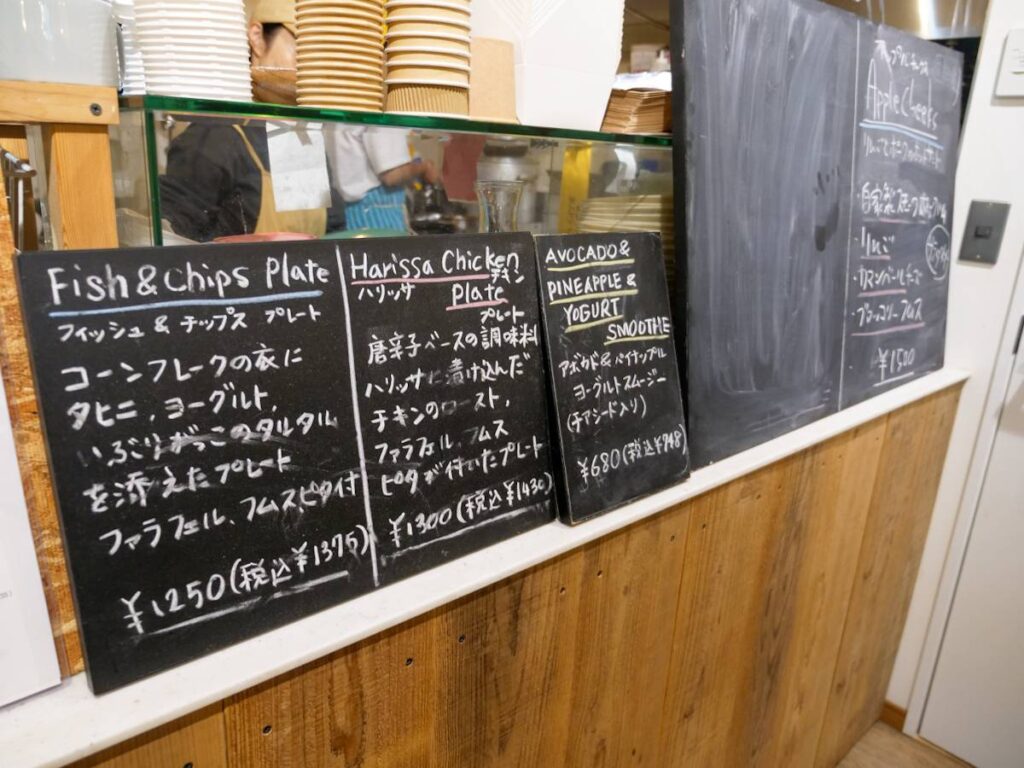 Fish & Chips Plate
フィッシュ & チップス プレート
コーンフレークの衣に
タヒニ、ヨーグルト、
いぶりがっこのタルタル
を添えたプレート
ファラフェル、フムスピタ付
¥1250(税込¥1375)
Harissa Chicken
ハリッサ チキン
Plate
プレート
唐辛子ベースの調味料
ハリッサに漬け込んだ
チキンのロースト,
ファラフェル、フムス
ピタが付いたプレート
¥1300(税込¥1430)
AVOCADO &
PINEAPPLE &
YOGURT
SMOOTHIE
アボカド & パイナップル
ヨーグルトスムージー
(チアシード入り)
¥680(税込¥748)
Apple Cheeks
自家製スモーク
・りんご
・カマンベールチーズ
・ブロッコリーフムス
¥1500